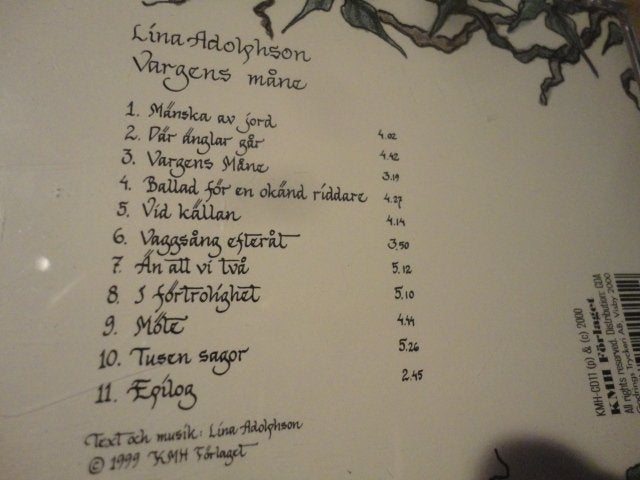 Lina Adolphson
Vargens måne
1. Mänska av jord 4.02
2. Där änglar går 4.42
3. Vargens Måne 3.19
4. Ballad för en okänd riddare 4.27
5. Vid källan 4.14
6. Vaggsång efteråt 3.50
7. Än all vi två 5.12
8. I förtrolighet 5.10
9. Möte 4.44
10. Tusen sagor 5.26
11. Epilog 2.45
Text och musik: Lina Adolphson
© 1999 KMH Förlaget
KMH-CD11 (p) & (c) 2000
KMH Förlaget
All rights reserved. Distribution: CDA
Tryckeri AB, Visby 2000